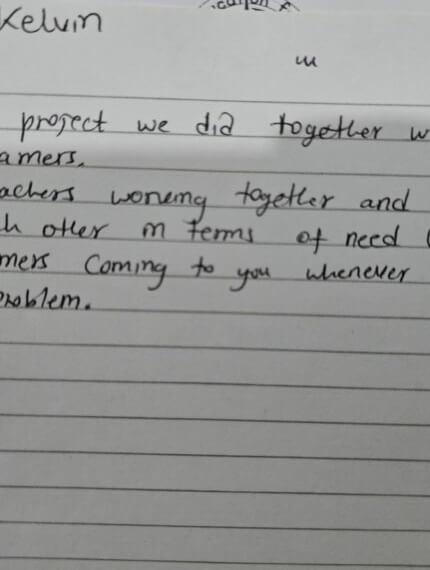 Kelvin
project we did together w
amers.
achers woneng together and
h other in terms of need
mers Coming to you whenever
problem.